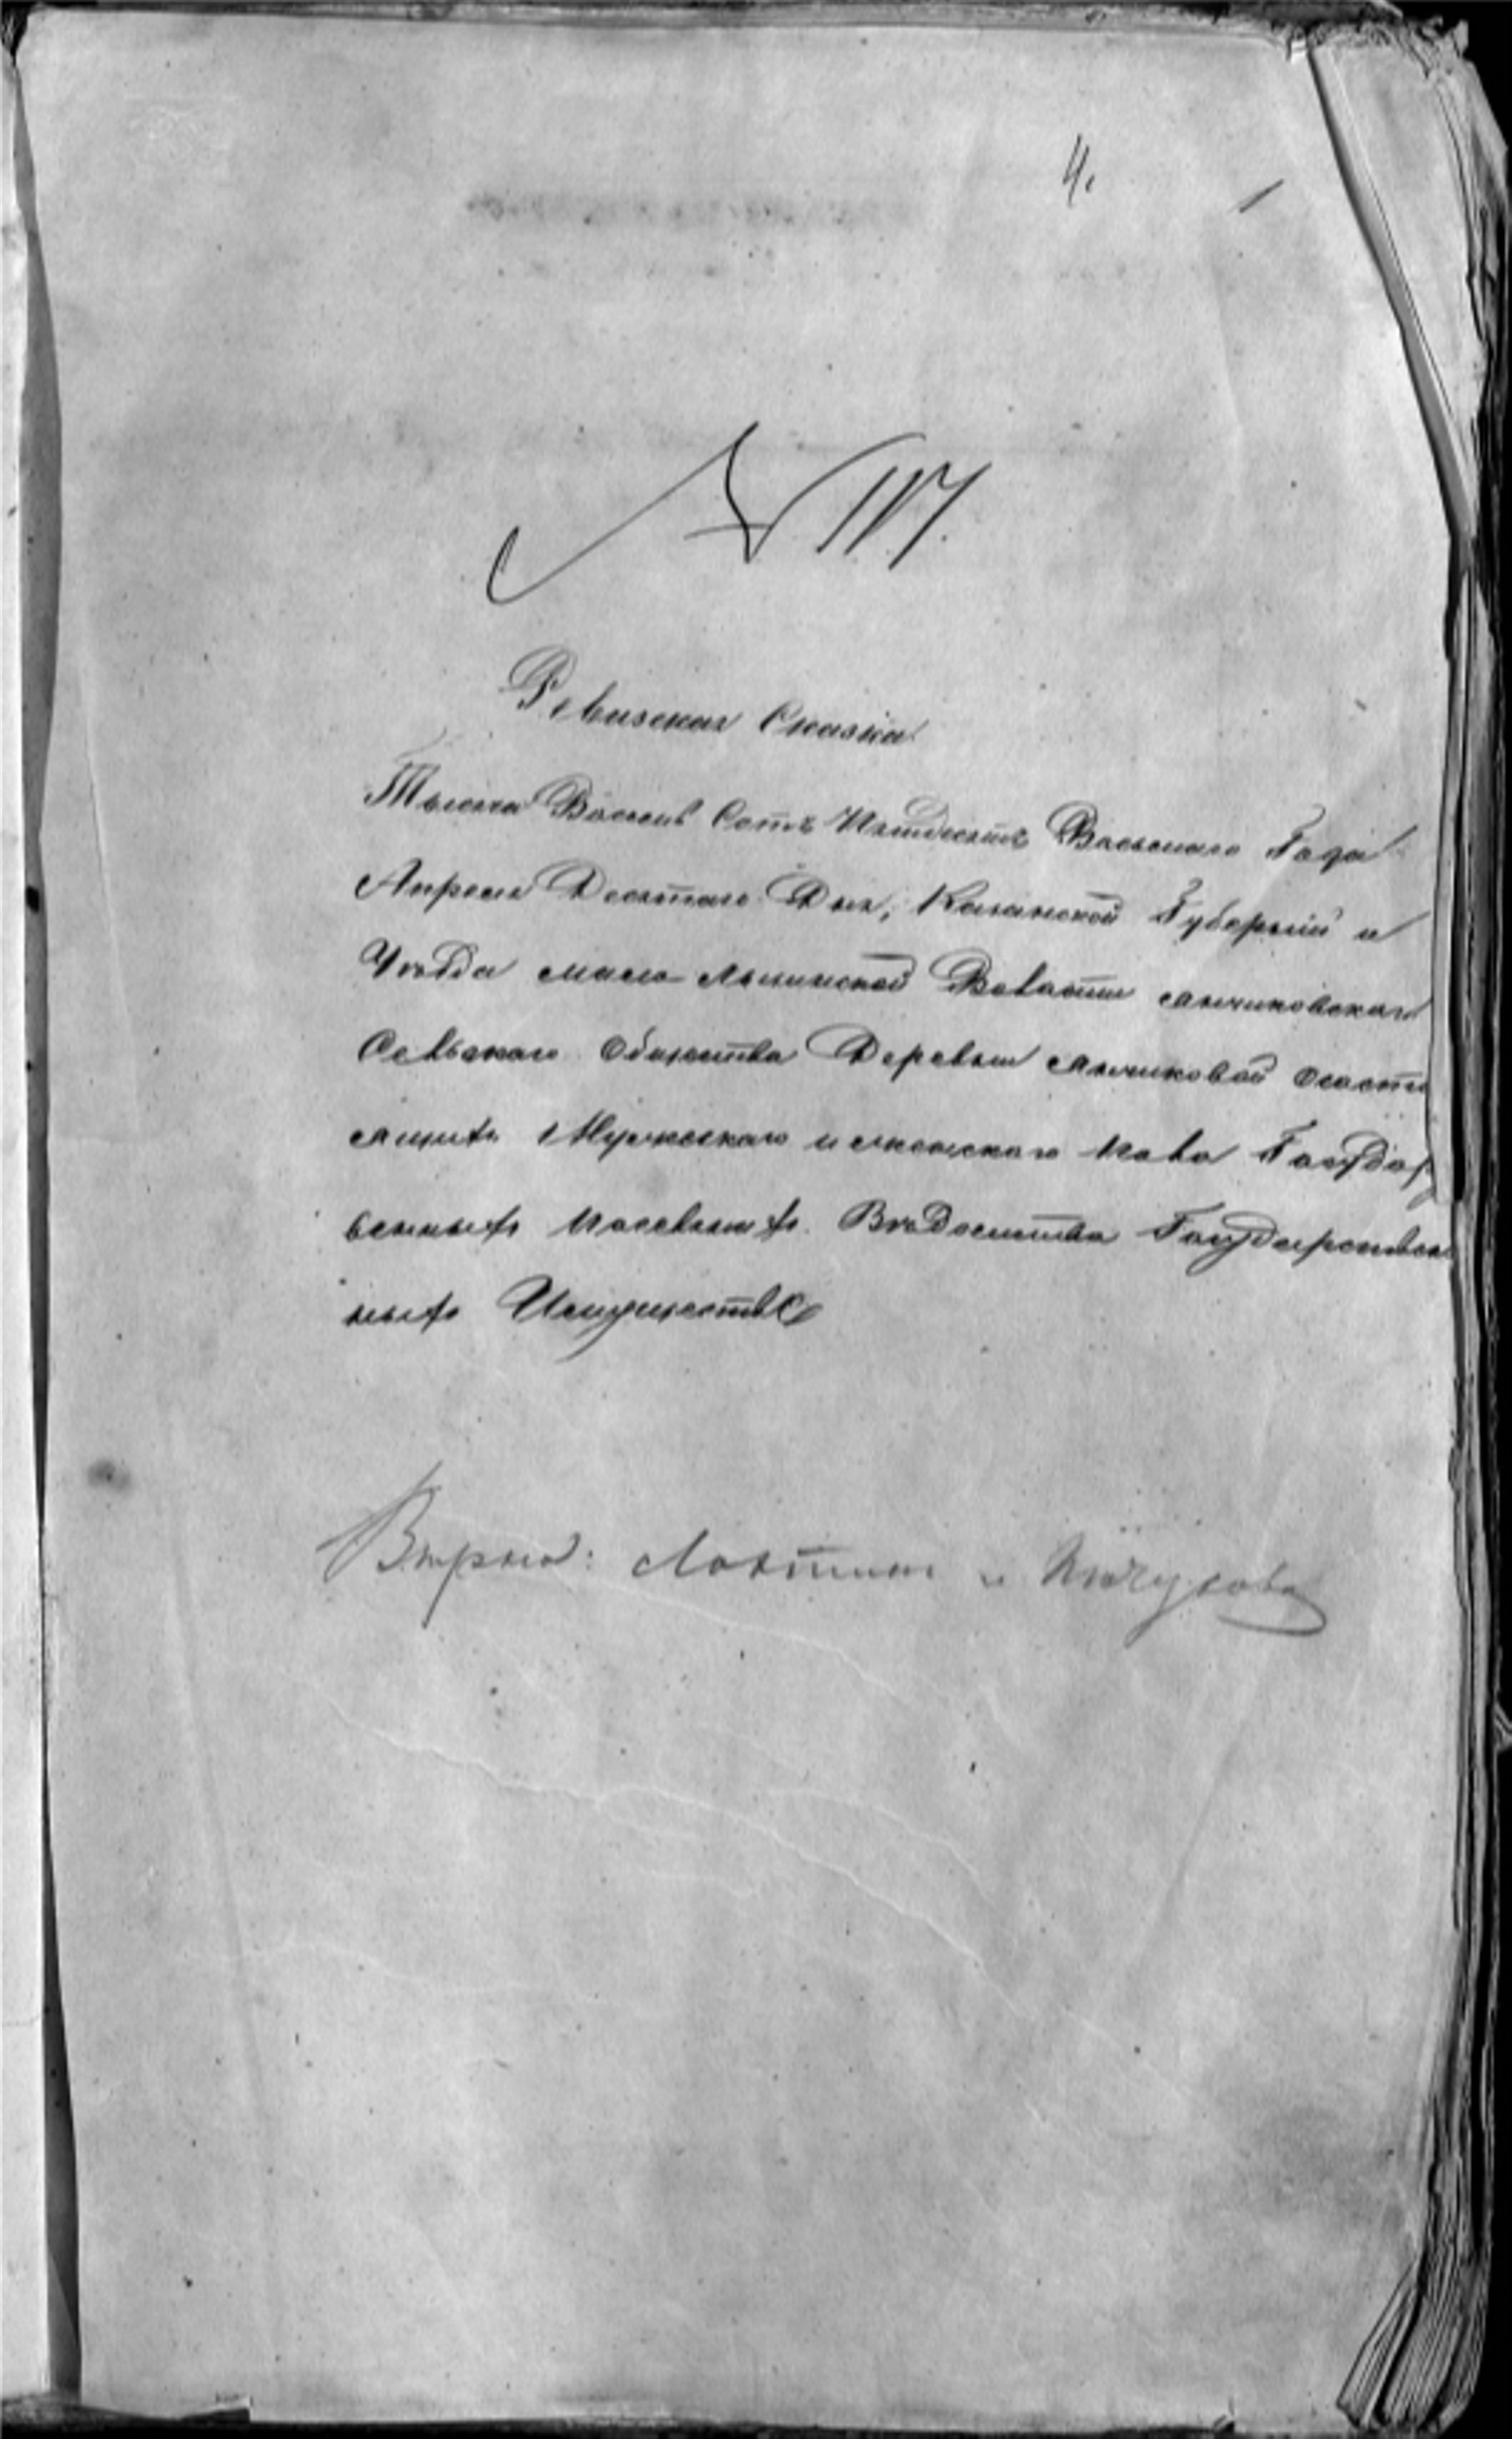 4.
№ 117.
Ревизская Сказка
Тысяча Восемь Сотъ Пятдесятъ Восьмаго Года
Апреля Десятаго Дня, Казанской Губернии и
Уѣзда мало Волости
Сельскаго Общества Деревни о состо
ящихъ Мужескаго и женскаго пола Государ
венныхъ поселянахъ Вѣдомства Государствен
ныхъ Имуществъ
Вѣрно: и